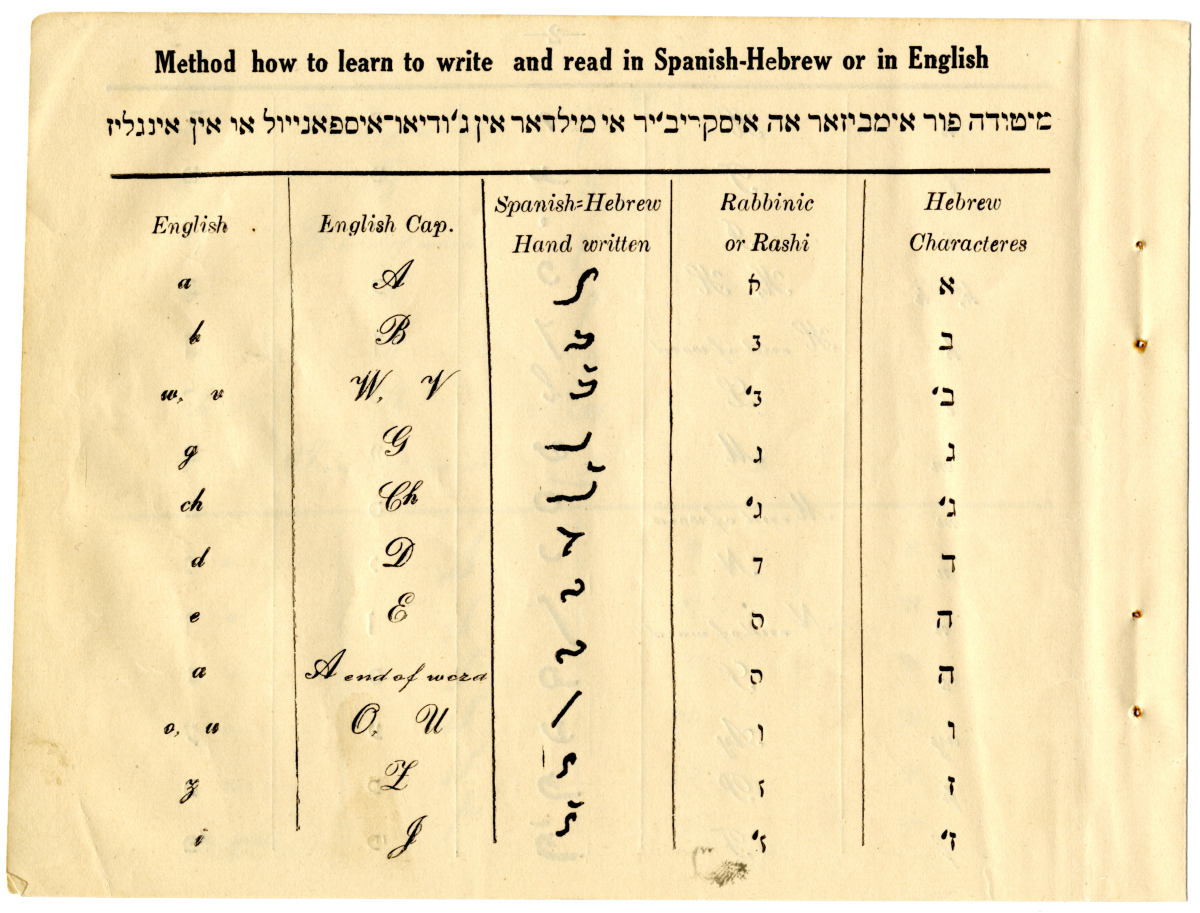 Method how to learn to write and read in Spanish-Hebrew or in English
מיטודה פור אימביזאר אה איסקריב'יר אי מילדאר אין ג'ודיאו־איספאנייול או אין אינגליז
English English Cap. Spanish=Hebrew Hand written Rabbinic or Rashi Hebrew Characteres
a A א א
b B ב ב
w, v W, V ב' ב'
g G ג ג
ch Ch ג' ג'
d D ד ד
e E ה ה
a A end of word ה ה
o, u O, U ו ו
z Z ז ז
i J ז' ז'